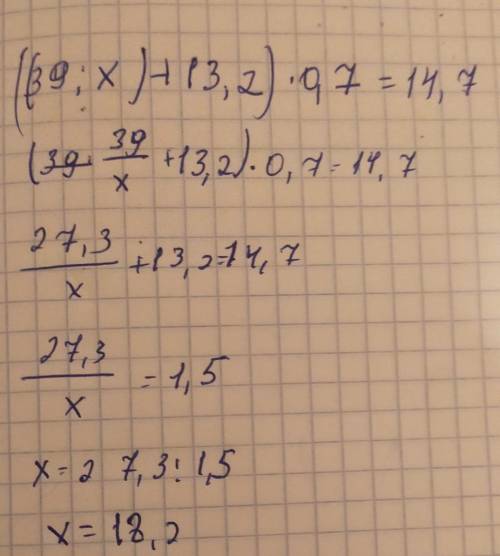 ((39 : x) + 13,2) · 0,7 = 14,7
(39 · 39/x + 13,2) · 0,7 = 14,7
27,3/x + 13,2 = 14,7
27,3/x = 1,5
x = 27,3 : 1,5
x = 18,2